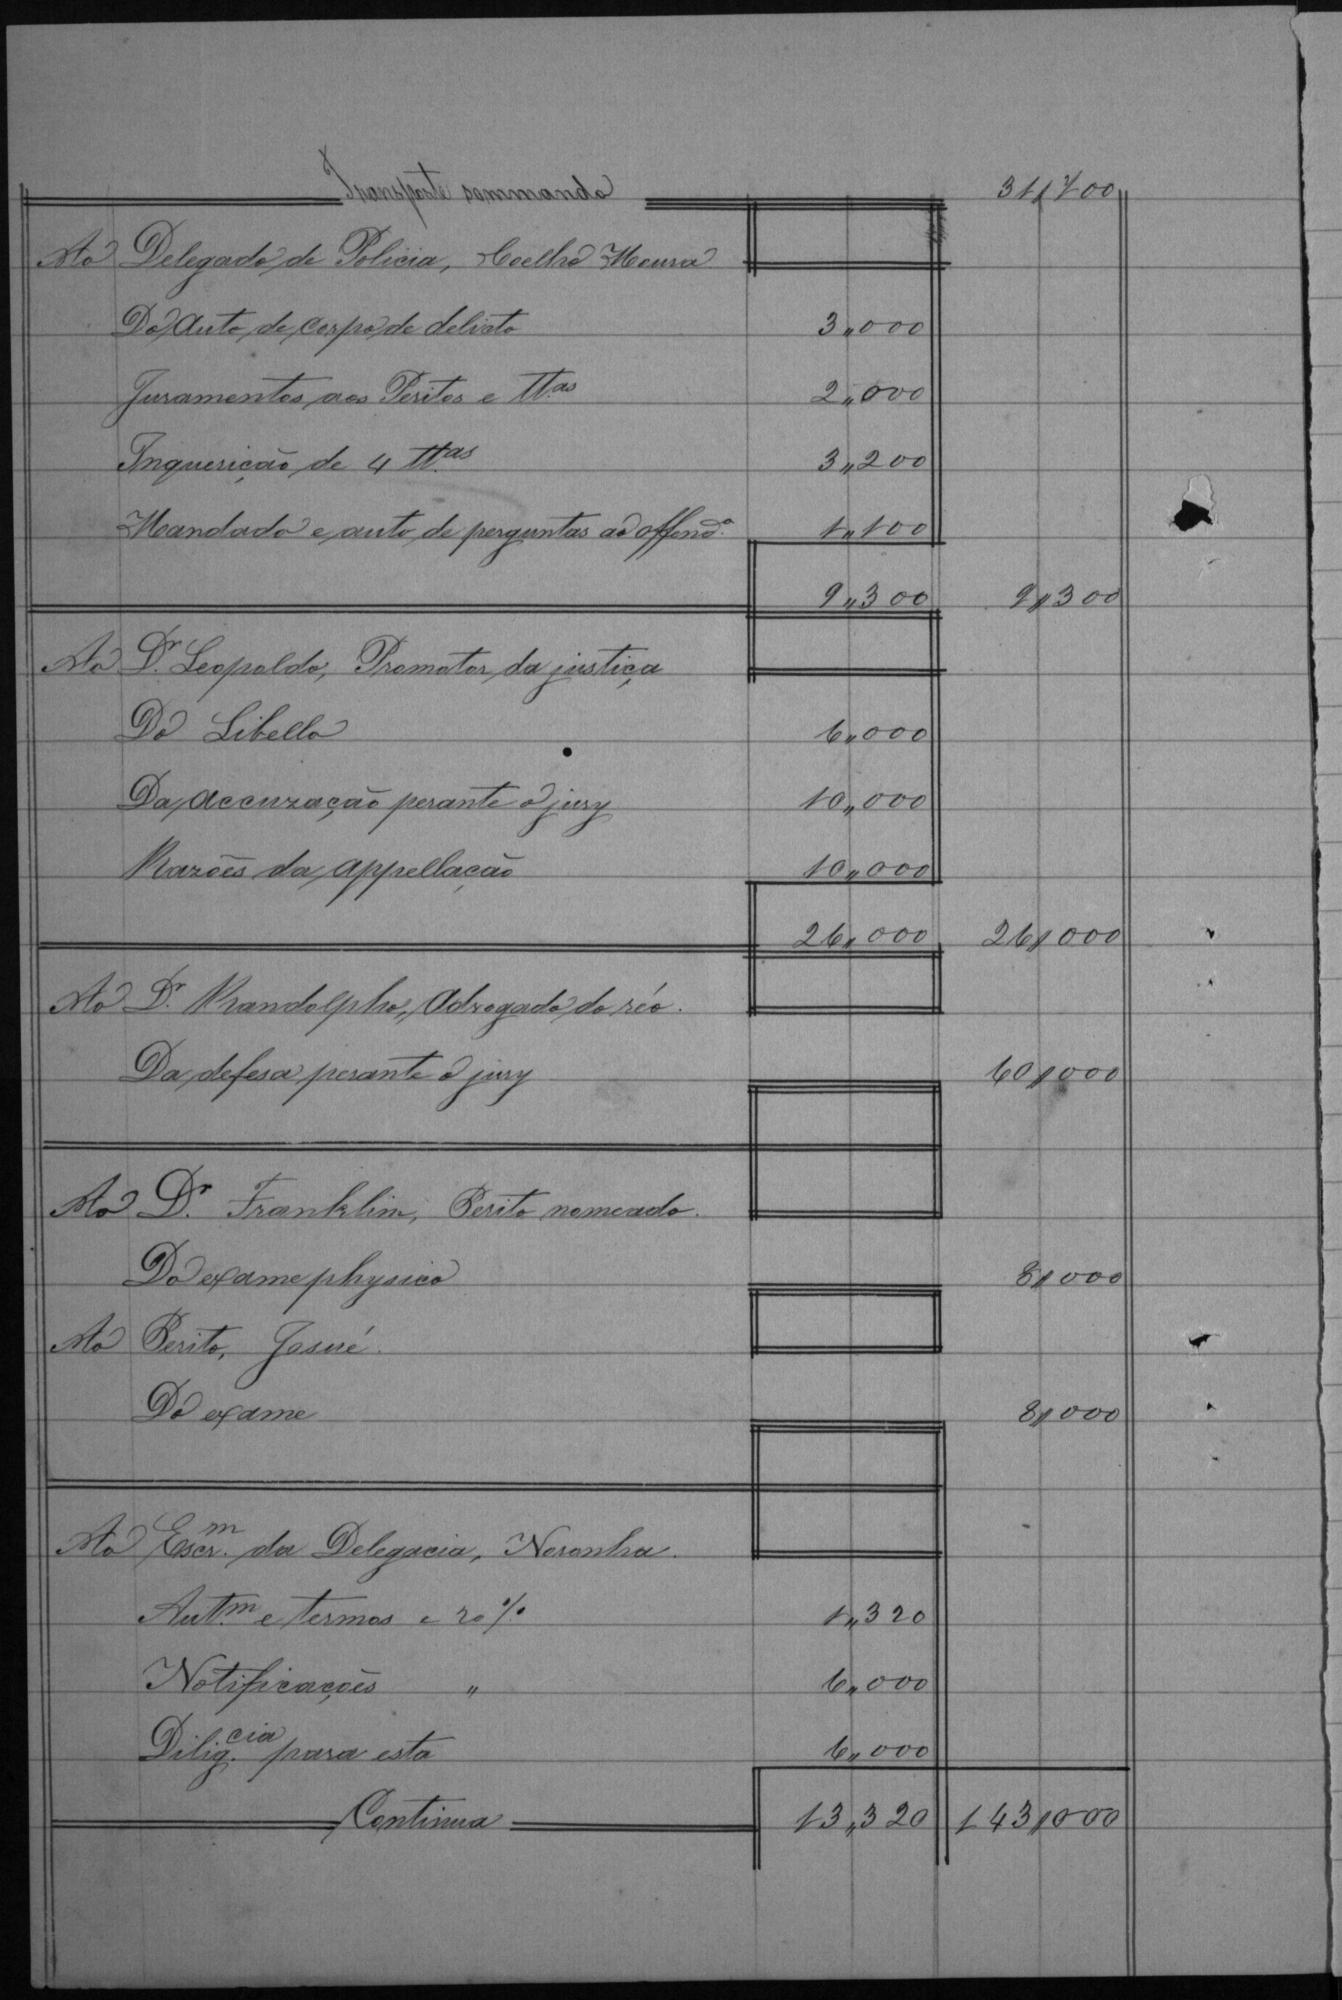 Transporte sommando 31,,700
Ao Delegado de Policia, Coelho Moura
Do Auto de corpo de delicto 3,,000
Juramentos aos Peritos e tt.as 2,,000
Inquerição de 4 tt.as 3,,200
Mandado e auto de perguntas ao offend.o 1,,100
9,,300 9,,300
Ao D.r Leopoldo, Promotor da justiça
Do Libello 6,,000
Da accuzação perante o jury 10,,000
Razões da appellação 10,,000
26,,000 26,,000
Ao D.r Randolpho, Advogado do réo.
Da defesa perante o jury 60,,000
Ao D.r Franklin, Perito nomeado.
Do exame physico 8,,000
Ao Perito, Josué.
Do exame 8,,000
Ao Escr.m da Delegacia, Noronha.
Aut.m e termos e 20% 1,,320
Notificações " 6,,000
Dilig.cia para esta 6,,000
Continua 13,,320 143,,000